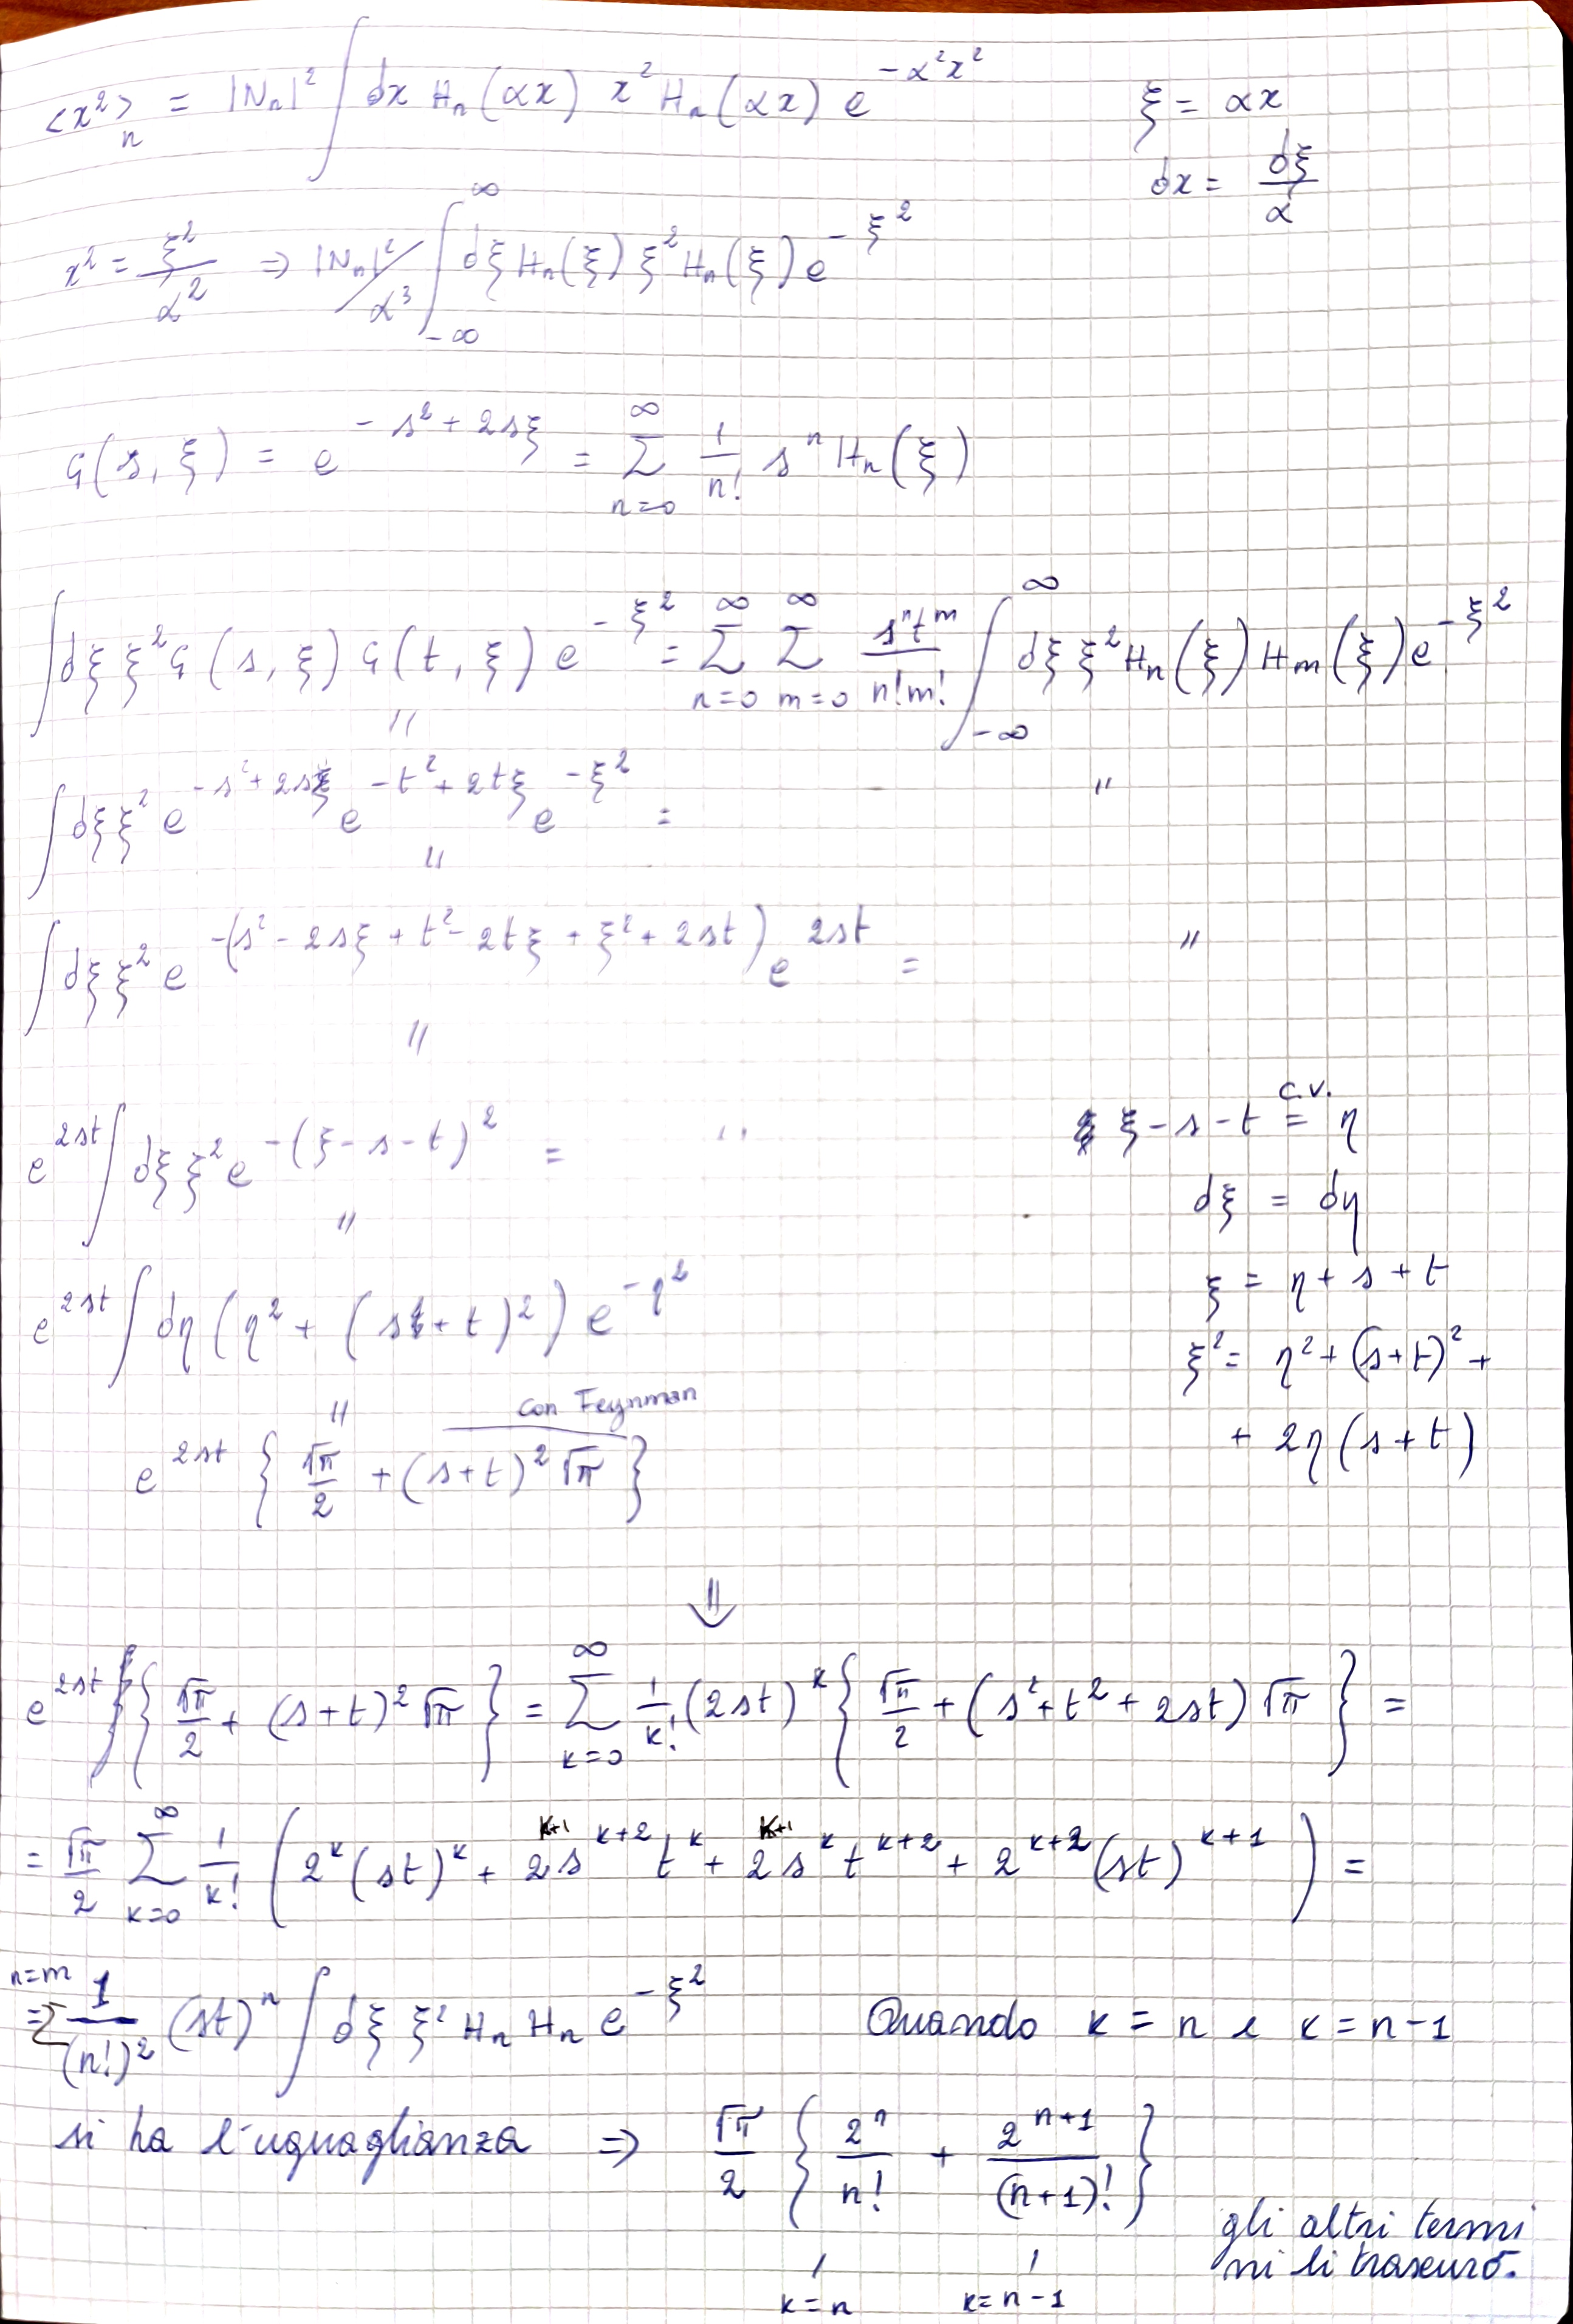 <x²>ₙ = |Nₙ|² ∫ dx Hₙ(αx) x² Hₙ(αx) e^{-α²x²}    ξ = αx
dx = dξ/α
x² = ξ²/α² ⇒ |Nₙ|²/α³ ∫_{-∞}^{∞} dξ Hₙ(ξ) ξ² Hₙ(ξ) e^{-ξ²}
G(s, ξ) = e^{-s²+2sξ} = Σ_{n=0}^{∞} 1/n! sⁿ Hₙ(ξ)
∫dξ ξ² G(s, ξ) G(t, ξ) e^{-ξ²} = Σ_{n=0}^{∞} Σ_{m=0}^{∞} sⁿtᵐ/n!m! ∫_{-∞}^{∞} dξ ξ² Hₙ(ξ) Hₘ(ξ) e^{-ξ²}
"
∫dξ ξ² e^{-s²+2sξ} e^{-t²+2tξ} e^{-ξ²} =    "
"
∫dξ ξ² e^{-(s²-2sξ+t²-2tξ+ξ²+2st)} e^{2st} =    "
"
e^{2st} ∫ dξ ξ² e^{-(ξ-s-t)²} =    "    ξ-s-t =^{c.v.} η
dξ = dη
"
ξ = η+s+t
e^{2st} ∫ dη (η² + (s+t)²) e^{-η²}    ξ² = η²+(s+t)²+
+ 2η(s+t)
" con Feynman
e^{2st} { √π/2 + (s+t)² √π }
⇓
e^{2st} { √π/2 + (s+t)² √π } = Σ_{k=0}^{∞} 1/k! (2st)^k { √π/2 + (s²+t²+2st) √π } =
= √π/2 Σ_{k=0}^{∞} 1/k! ( 2^k (st)^k + 2^{k+1} s^{k+2} t^k + 2^{k+1} s^k t^{k+2} + 2^{k+2} (st)^{k+1} ) =
n=m
= Σ 1/(n!)² (st)ⁿ ∫ dξ ξ² Hₙ Hₙ e^{-ξ²}    Quando k = n e k = n-1
si ha l'uguaglianza ⇒ √π/2 { 2ⁿ/n! + 2^{n+1}/(n+1)! }
gli altri termi
ni li trascuro.
k=n    k=n-1